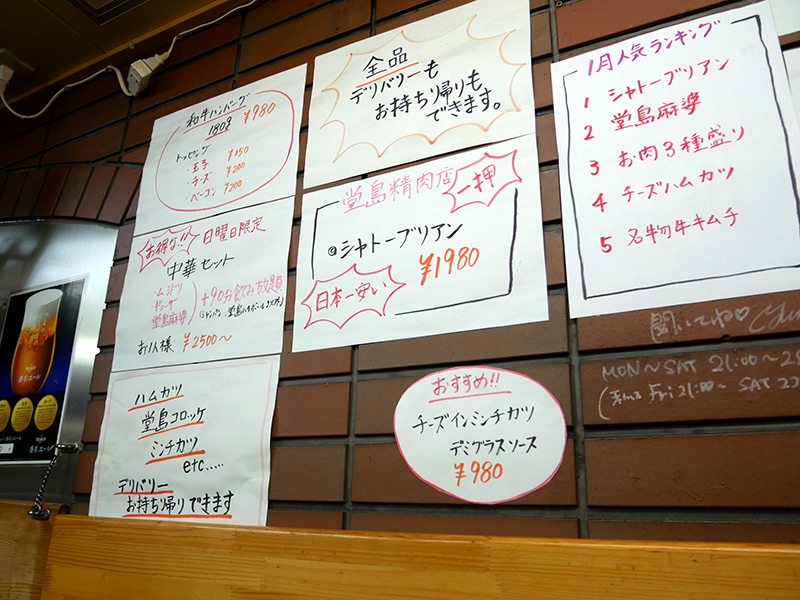 和牛ハンバーグ
180g ¥980
トッピング
・玉子 ¥150
・チーズ ¥200
・ベーコン ¥200
お得な!! 日曜日限定
中華セット
ギョーザ
堂島麻婆
+90分飲み放題
お1人様 ¥2500〜
ハムカツ
堂島コロッケ
ミンチカツ
etc.....
デリバリー
お持ち帰りできます
全品
デリバリーも
お持ち帰りも
できます。
堂島精肉店
一押
◎シャトーブリアン
¥1980
日本一安い
おすすめ!!
チーズインミンチカツ
デミグラスソース
¥980
1月人気ランキング
1 シャトーブリアン
2 堂島麻婆
3 お肉3種盛り
4 チーズハムカツ
5 名物牛キムチ
聞いてね♡
MON〜SAT 21:00〜
Fri 21:00〜 SAT
香るエール